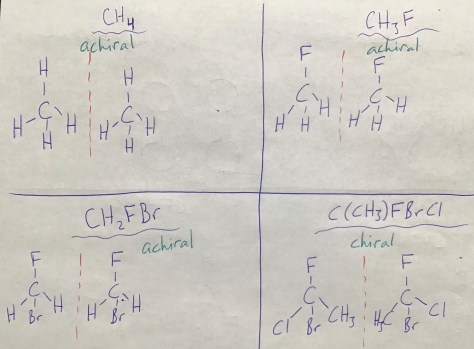 CH₄
achiral
H H
C C
H H H H H H
CH₃F
achiral
F F
C C
H H H H H H
CH₂FBr
achiral
F F
C C
H Br H H Br H
C(CH₃)FBrCl
chiral
F F
C C
Cl Br CH₃ H₃C Br Cl